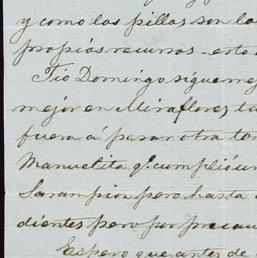 y como las pillas son la
propios recursos - esto
Tio Domingo sigue mej
mejor en Miraflores, ta
fuera á pasar otra tom
Manuelita q. cumplió un
Sarampion pero hasta
dientes pero por precau
Espero que antes de